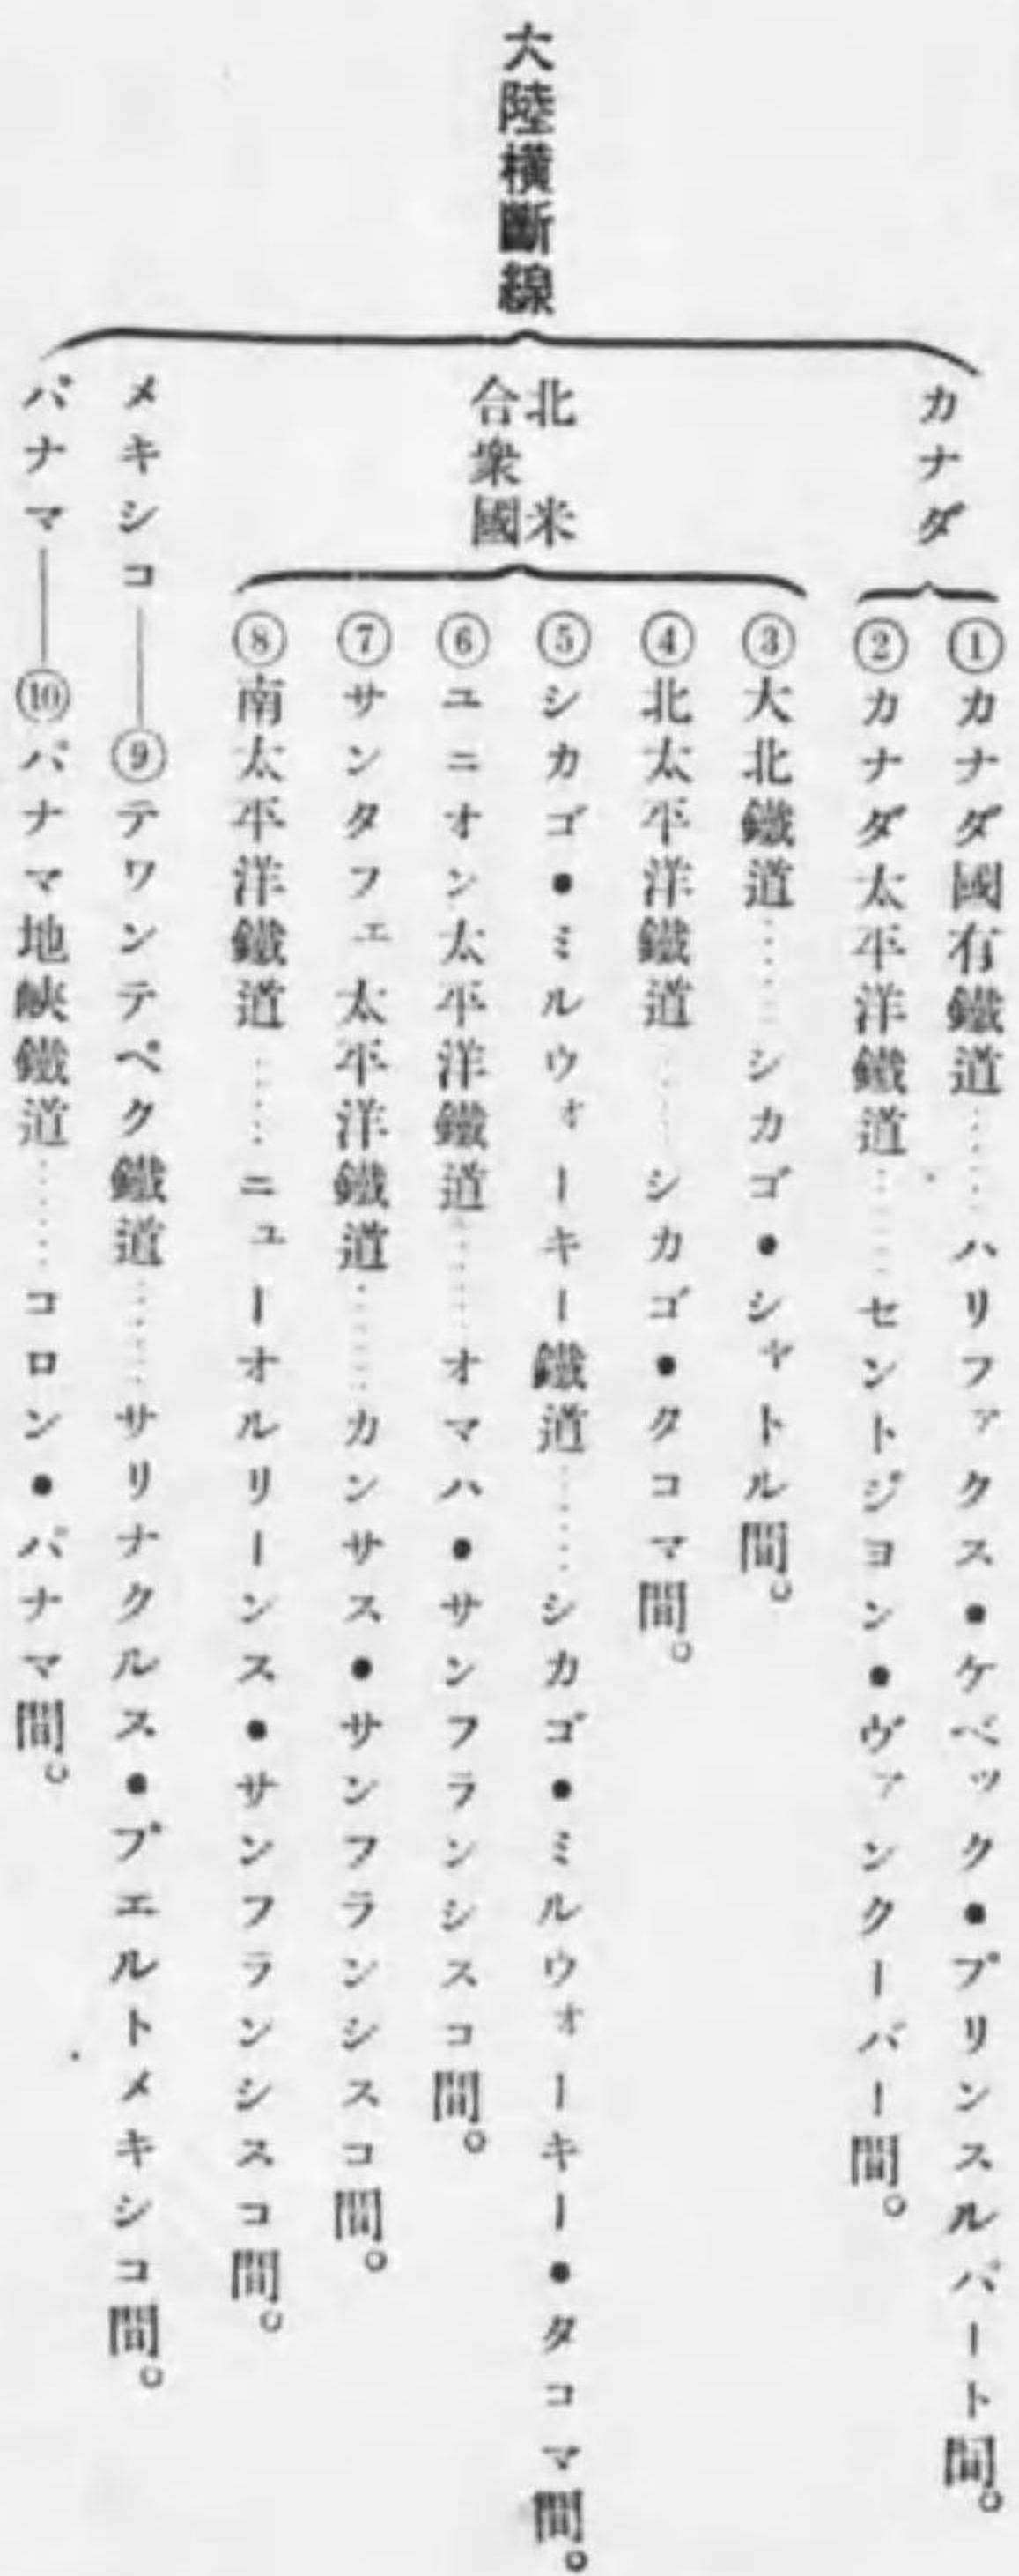 大陸橫斷線
カナダ
①カナダ國有鐵道……ハリファクス・ケベック・プリンスルパート間。
②カナダ太平洋鐵道……セントジョン・ヴァンクーバー間。
北米
合衆國
③大北鐵道……シカゴ・シャトル間。
④北太平洋鐵道……シカゴ・タコマ間。
⑤シカゴ・ミルウォーキー鐵道……シカゴ・ミルウォーキー・タコマ間。
⑥ユニオン太平洋鐵道……オマハ・サンフランシスコ間。
⑦サンタフェ太平洋鐵道……カンサス・サンフランシスコ間。
⑧南太平洋鐵道……ニューオルリーンス・サンフランシスコ間。
メキシコ――⑨テワンテペク鐵道……サリナクルス・プエルトメキシコ間。
パナマ――⑩パナマ地峽鐵道……コロン・パナマ間。